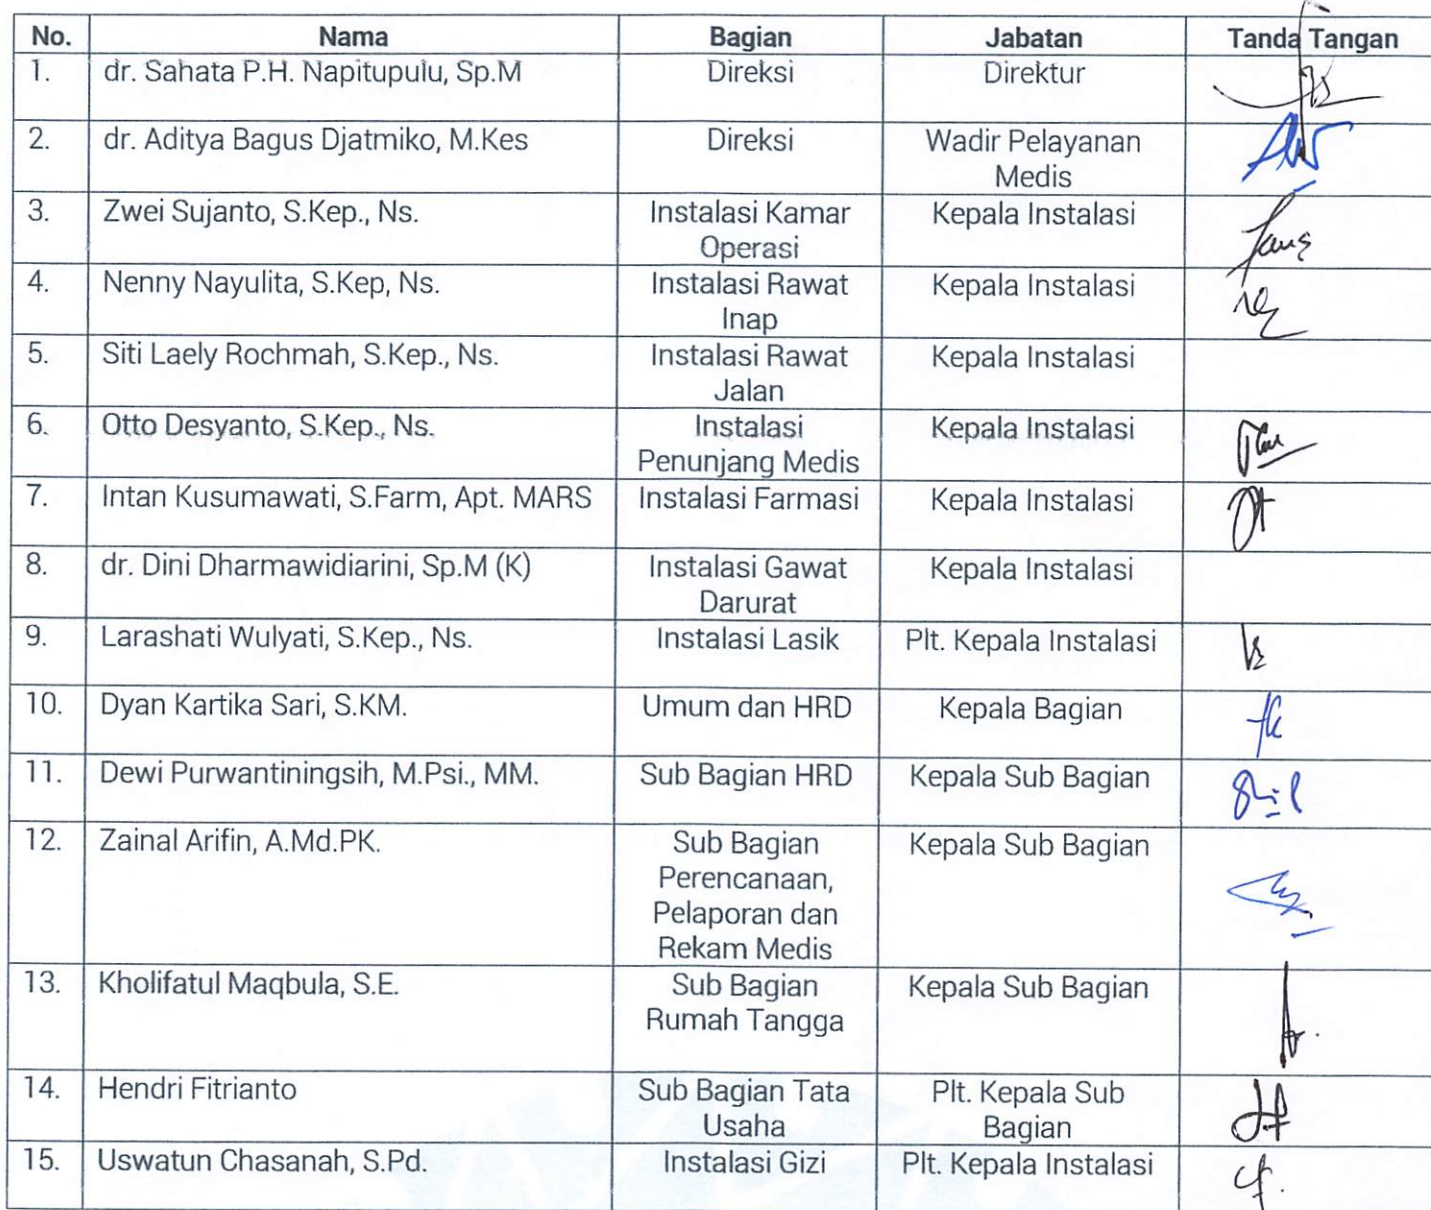 No. Nama Bagian Jabatan Tanda Tangan
1. dr. Sahata P.H. Napitupulu, Sp.M Direksi Direktur
2. dr. Aditya Bagus Djatmiko, M.Kes Direksi Wadir Pelayanan
Medis
3. Zwei Sujanto, S.Kep., Ns. Instalasi Kamar Kepala Instalasi
Operasi
4. Nenny Nayulita, S.Kep, Ns. Instalasi Rawat Kepala Instalasi
Inap
5. Siti Laely Rochmah, S.Kep., Ns. Instalasi Rawat Kepala Instalasi
Jalan
6. Otto Desyanto, S.Kep., Ns. Instalasi Kepala Instalasi
Penunjang Medis
7. Intan Kusumawati, S.Farm, Apt. MARS Instalasi Farmasi Kepala Instalasi
8. dr. Dini Dharmawidiarini, Sp.M (K) Instalasi Gawat Kepala Instalasi
Darurat
9. Larashati Wulyati, S.Kep., Ns. Instalasi Lasik Plt. Kepala Instalasi
10. Dyan Kartika Sari, S.KM. Umum dan HRD Kepala Bagian
11. Dewi Purwantiningsih, M.Psi., MM. Sub Bagian HRD Kepala Sub Bagian
12. Zainal Arifin, A.Md.PK. Sub Bagian Kepala Sub Bagian
Perencanaan,
Pelaporan dan
Rekam Medis
13. Kholifatul Maqbula, S.E. Sub Bagian Kepala Sub Bagian
Rumah Tangga
14. Hendri Fitrianto Sub Bagian Tata Plt. Kepala Sub
Usaha Bagian
15. Uswatun Chasanah, S.Pd. Instalasi Gizi Plt. Kepala Instalasi